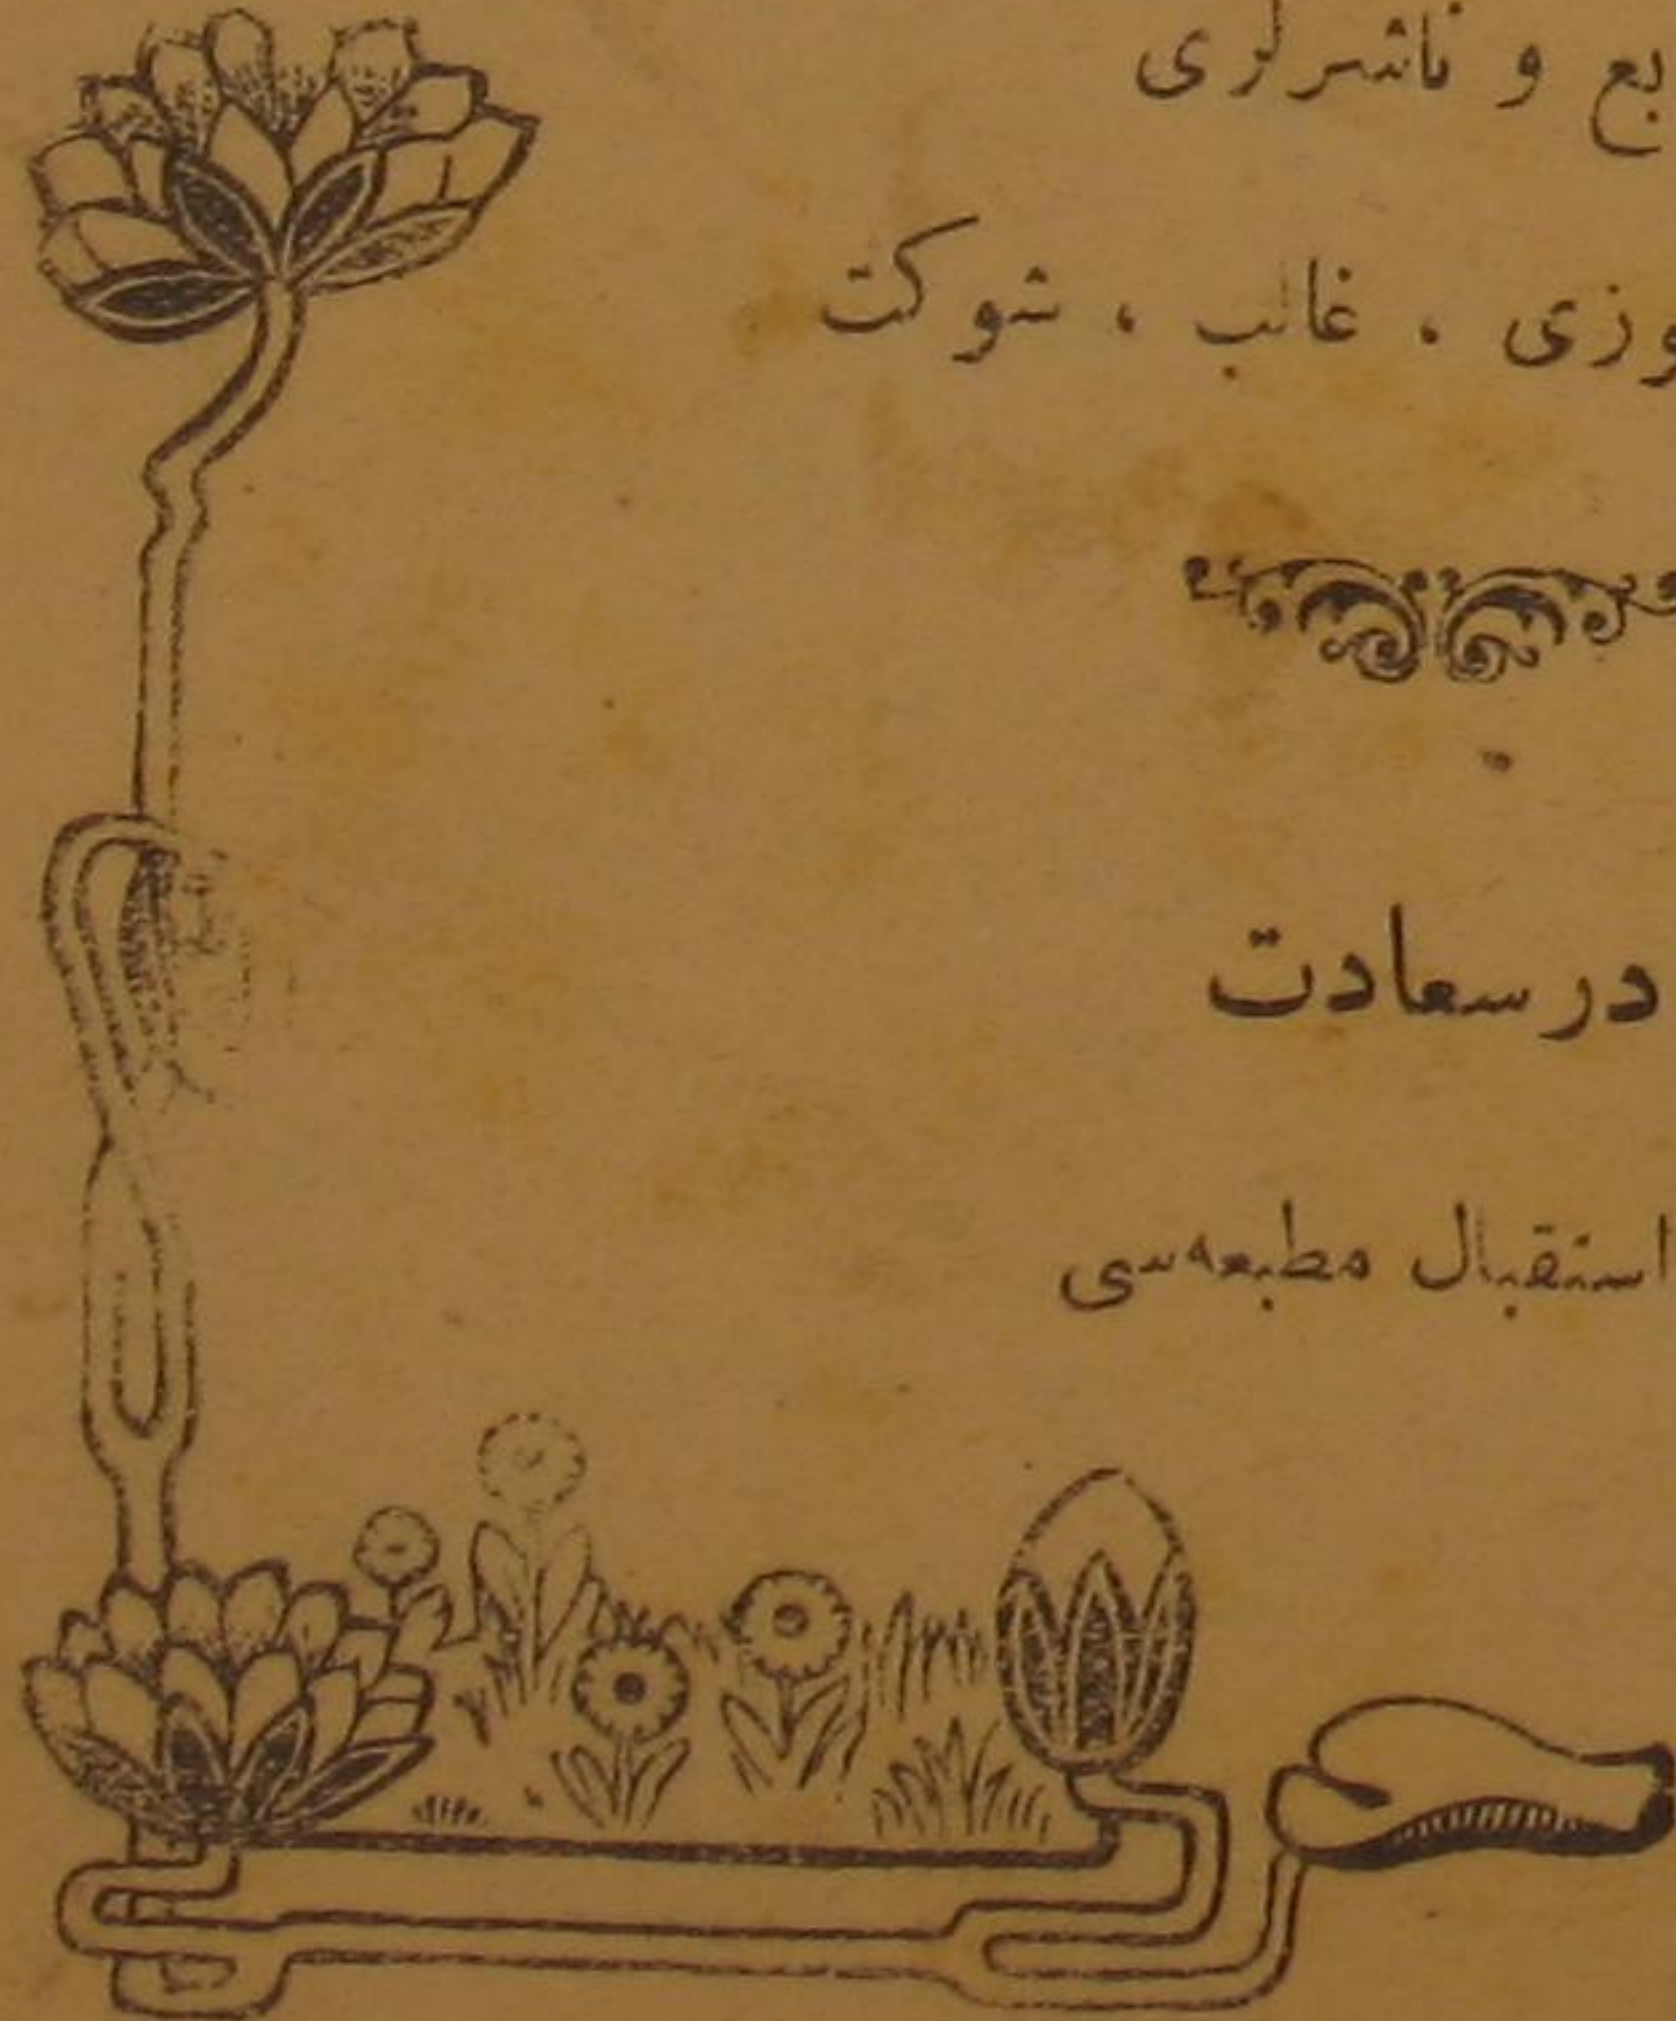 بع و ناشرلری
وزی ، غالب ، شوکت
درسعادت
استقبال مطبعه‌سی